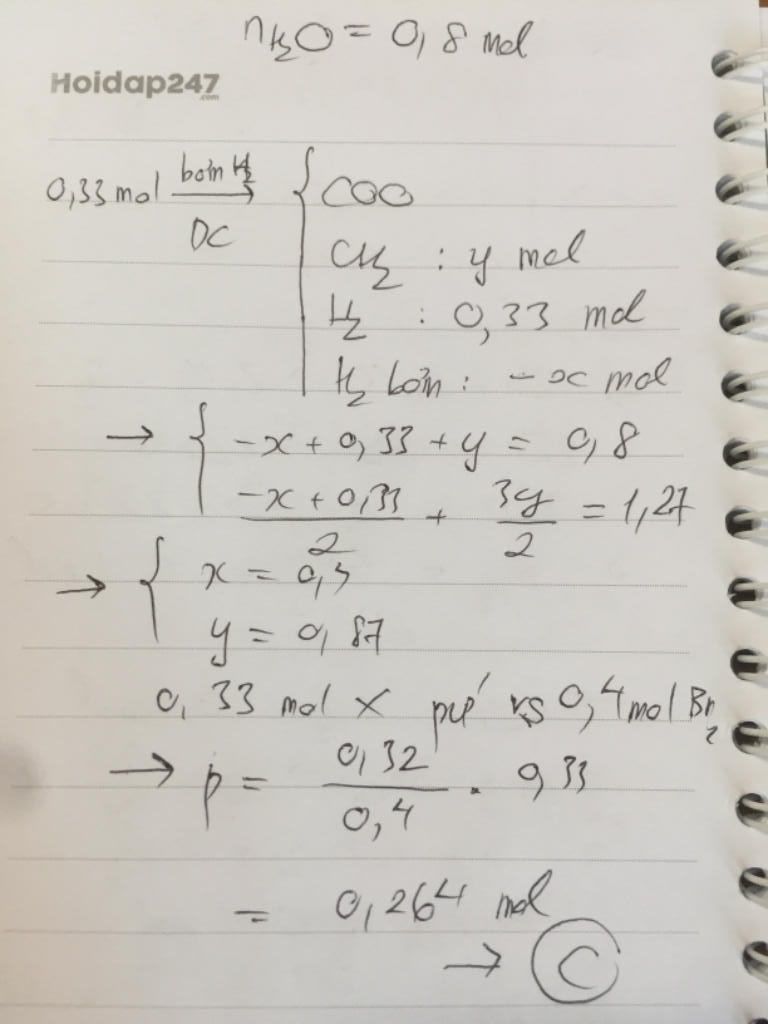 nH₂O = 0,8 mol
Hoidap247
.com
0,33 mol bơm H₂ → { COO
DC
CH₂ : y mol
H₂ : 0,33 mol
H₂ bơm : -x mol
→ { -x + 0,33 + y = 0,8
(-x + 0,33)/2 + 3y/2 = 1,27
→ { x = 0,4
y = 0,87
0,33 mol X pứ vs 0,4 mol Br₂
→ p = 0,32/0,4 . 0,33
= 0,264 mol
→ C